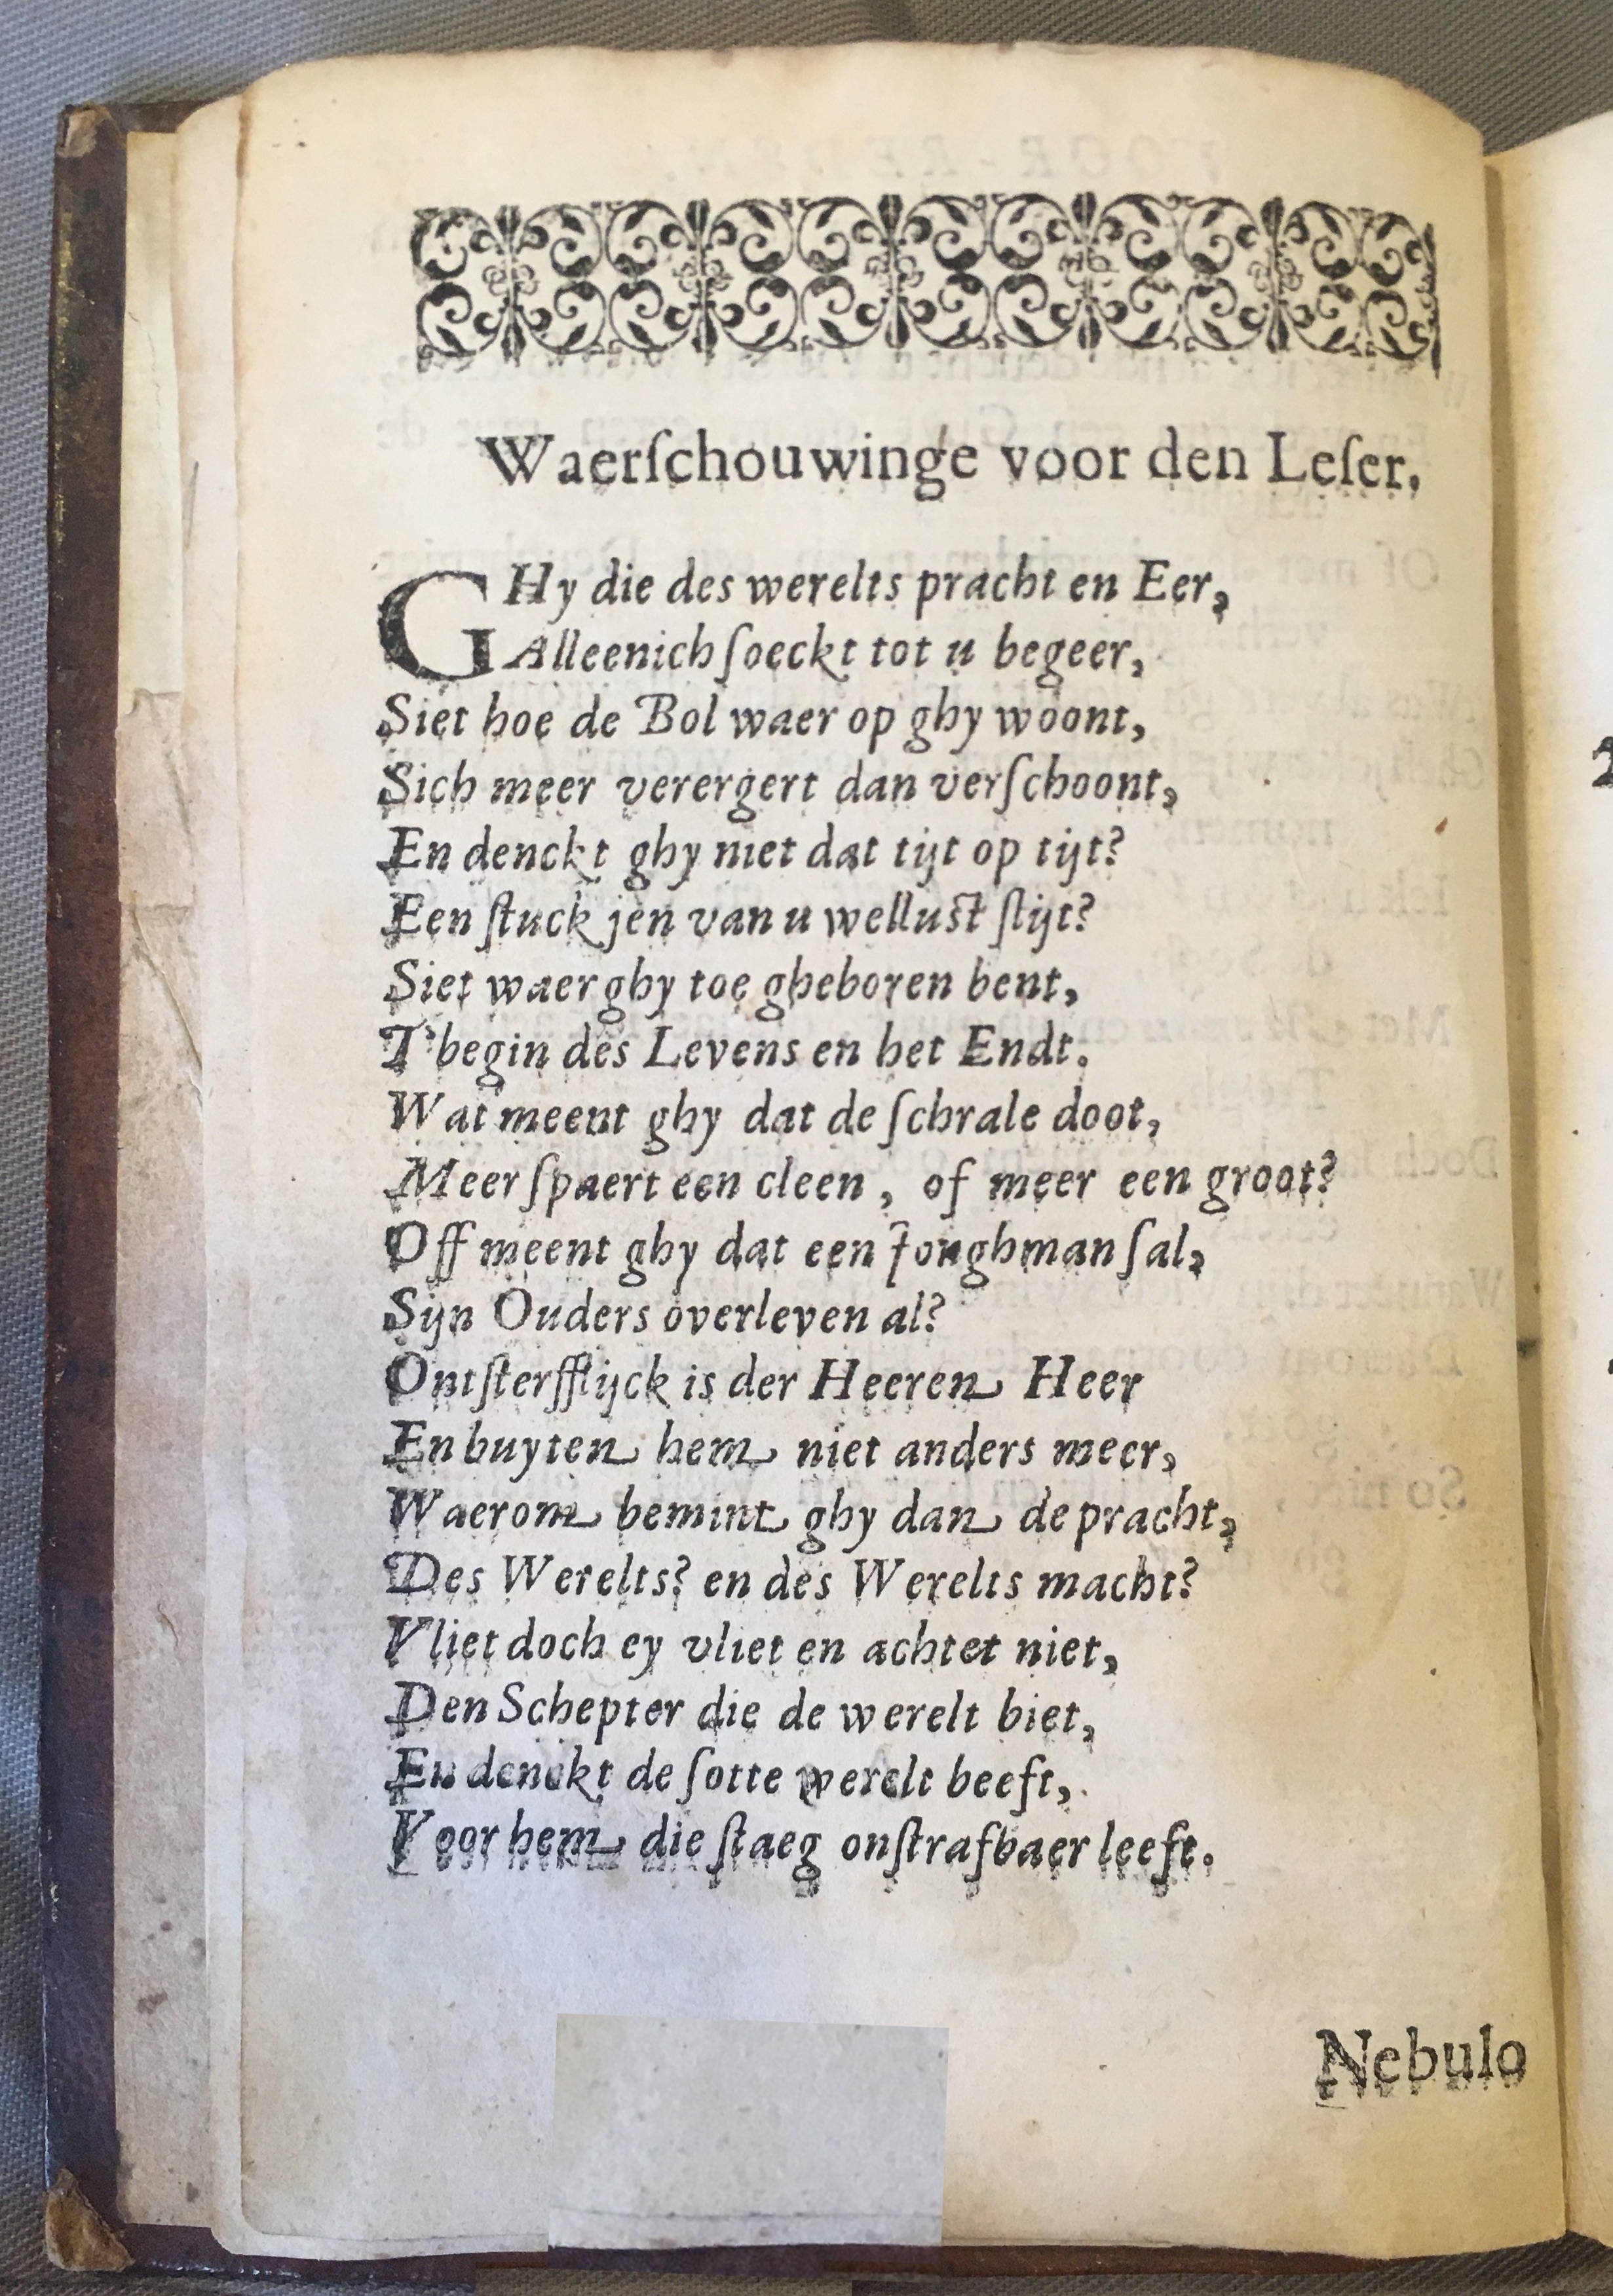 Waerſchouwinge voor den Leſer.
GHy die des werelts pracht en Eer,
Alleenich ſoeckt tot u begeer,
Siet hoe de Bol waer op ghy woont,
Sich meer verergert dan verſchoont,
En denckt ghy niet dat tijt op tijt?
Een ſtuckjen van u wellust ſlijt?
Siet waer ghy toe gheboren bent,
T'begin des Levens en het Endt.
Wat meent ghy dat de ſchrale doot,
Meer ſpaert een cleen, of meer een groot?
Off meent ghy dat een Jonghman ſal,
Sijn Ouders overleven al?
Ontſterfflijck is der Heeren Heer
En buyten hem niet anders meer,
Waerom bemint ghy dan de pracht,
Des Werelts? en des Werelts macht?
Vliet doch ey vliet en achtet niet,
Den Schepter die de werelt biet,
En denckt de ſotte werelt beeft,
Voor hem die ſtaeg onſtrafbaer leeft.
Nebulo